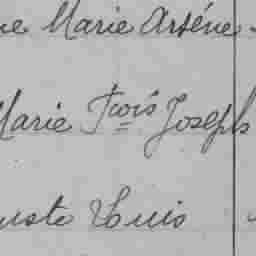 ne Marie Arsène
Marie Frois Joseph
uste Louis